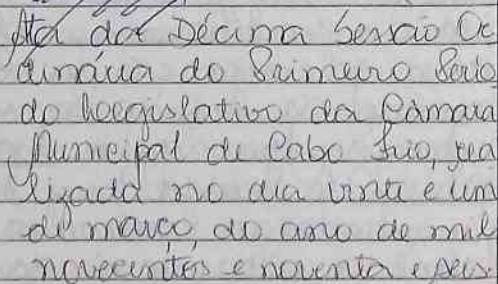 Ata da Décima Sessão Or
dinária do Primeiro Perío
do Leegislativo da Câmara
Municipal de Cabo Frio, rea
lizada no dia vinte e um
de março, do ano de mil
novecentos e noventa e seis.